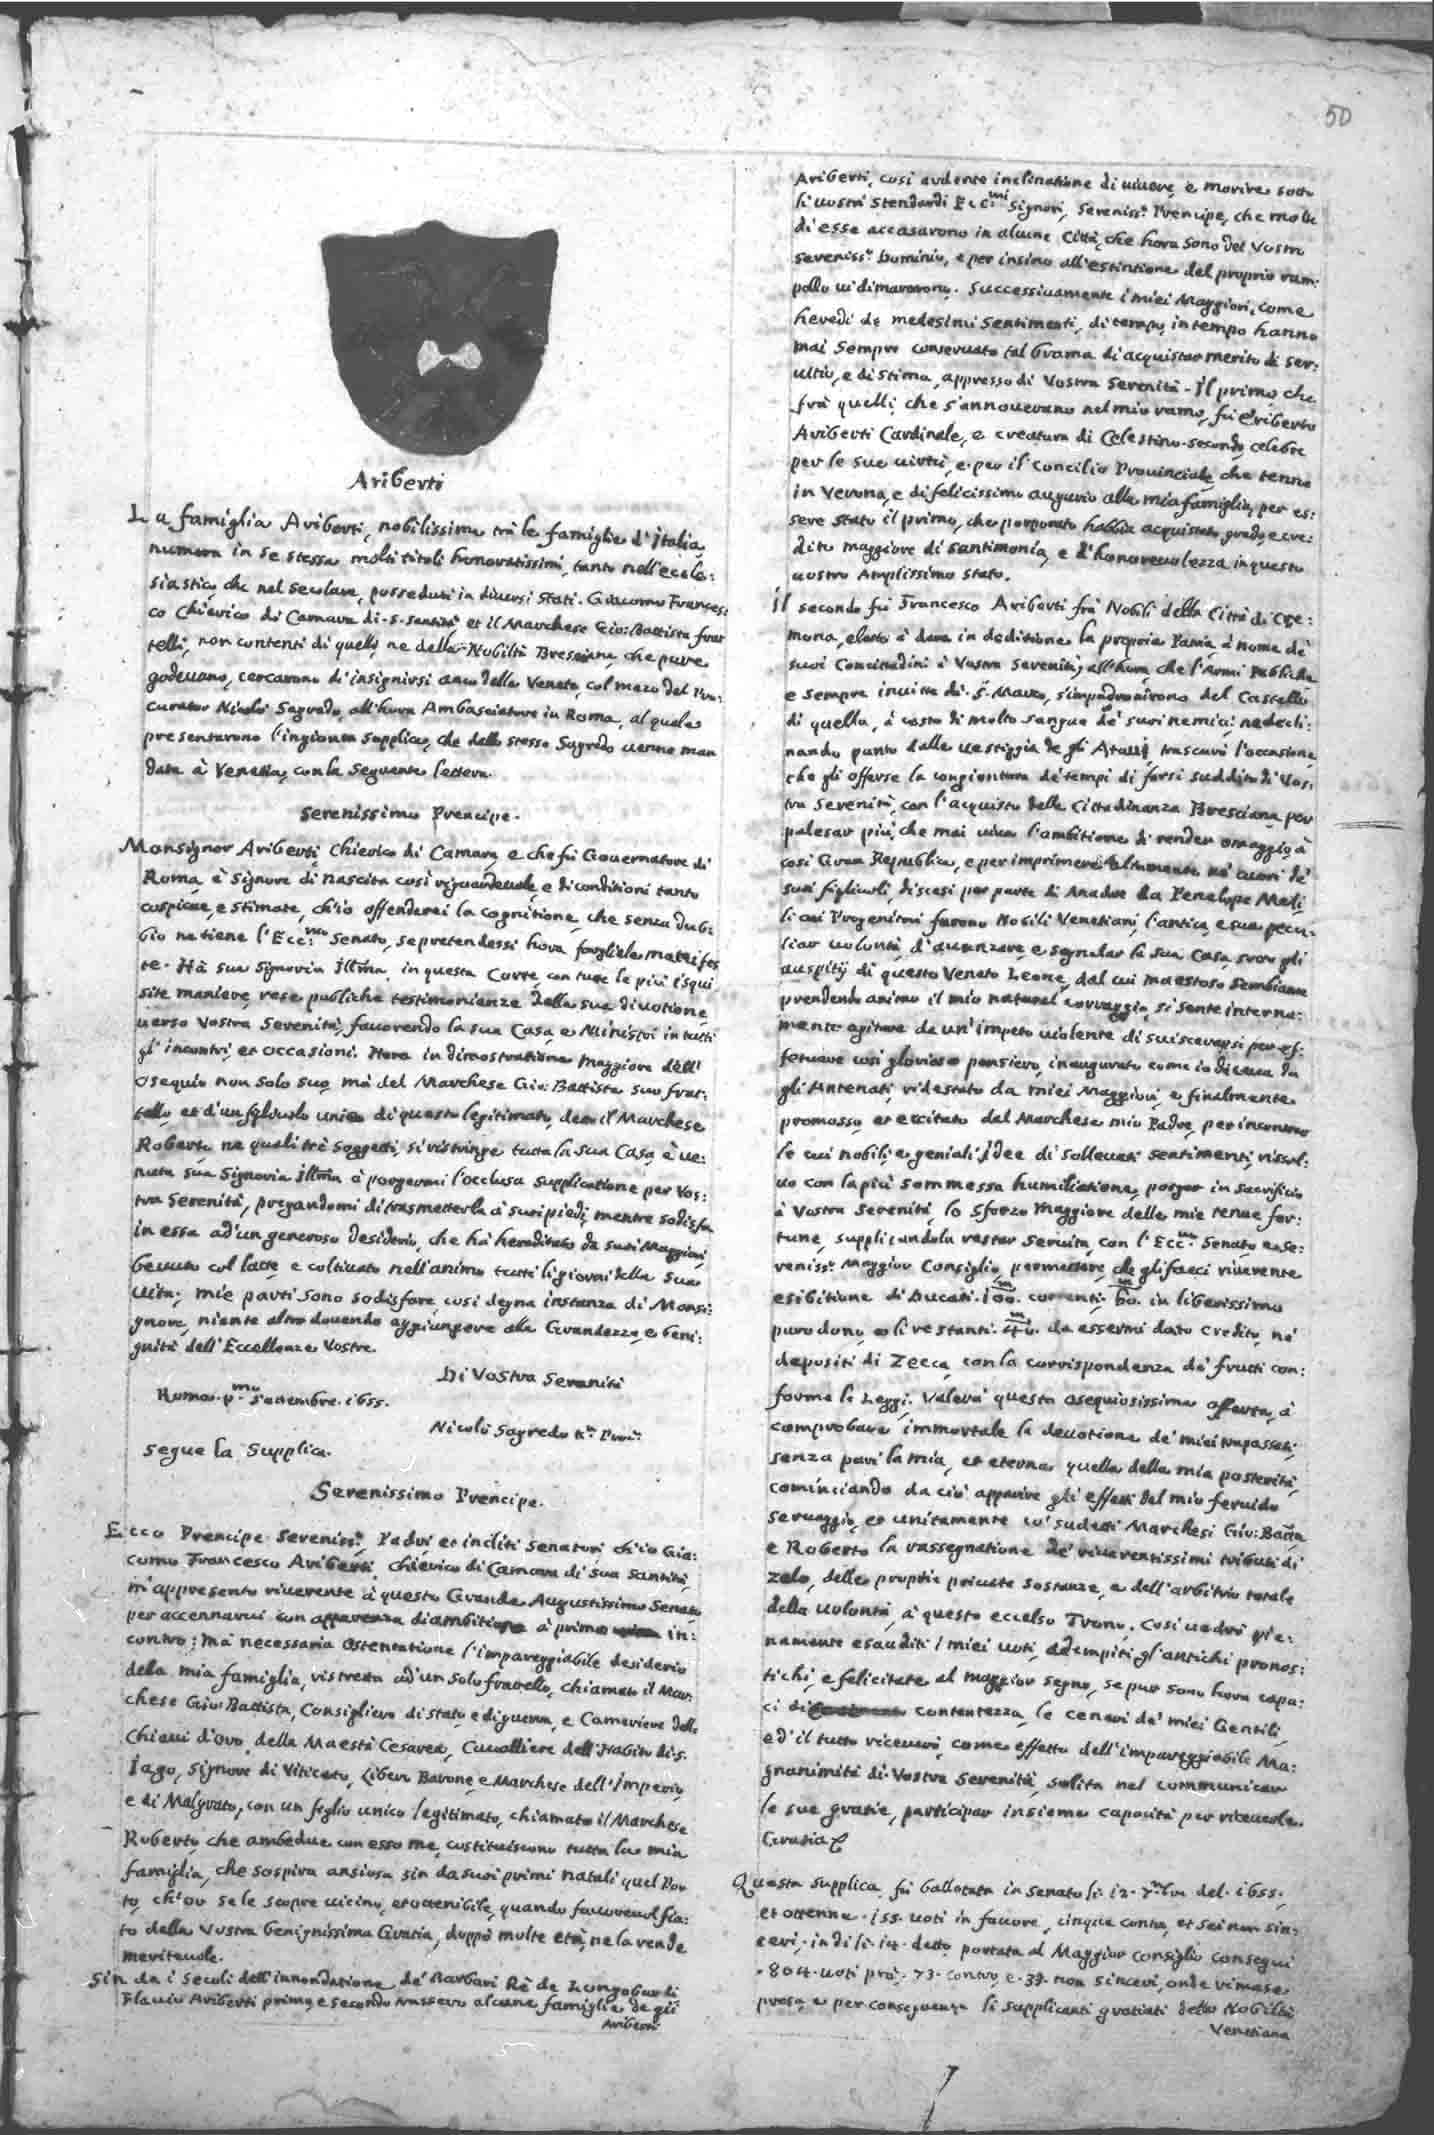 50
Ariberti
La famiglia Ariberti, nobilissima trà le famiglie d'Italia,
numera in se stessa molti titoli honoratissimi, tanto nell'eccle:
siastico, che nel Secolare, posseduti in diversi stati. Giacomo Frances:
co Chierico di Camara di. S. Santità et il Marchese Gio: Battista fra
telli, non contenti di quello ne della Nobiltà Bresciana, che pure
godeuano, cercarono d'insignirsi anco della Veneta, col mezo del Pro:
curator Nicolò Sagredo, all'hora Ambasciatore in Roma, al quale
presentarono l'ingionta supplica, che dallo stesso Sagredo uenne man
data à Venetia, con la seguente lettera.
Serenissimo Prencipe.
Monsignor Ariberti, Chierico di Camara, e che fù Gouernatore di
Roma, è Signore di nascita così riguardeuole, e di conditioni tanto
cospicue, e stimate, ch'io offenderei la cognitione, che senza dub:
bio ne tiene l'Ecc.mo Senato, se pretendessi hora fargliele manifes
te. Hà sua Signoria Ill̃ma, in questa Corte, con tutte le più isqui
site maniere, rese publiche testimonianze della sua diuotione
uerso Vostra Serenità, fauorendo la sua Casa, e Ministri in tutti
gl'incontri, et occasioni. Hora in dimostratione maggiore dell'
osequio non solo suo, mà del Marchese Gio: Battista suo frat:
tello, et d'un figliuolo unico di questo legitimato, detto il Marchese
Roberto, ne quali trè soggetti, si ristringe tutta la sua Casa, è ue:
nuta sua Signoria Ill̃ma à porgermi l'occlusa supplicatione per Vos:
tra Serenità, pregandomi di trasmetterla à suoi piedi, mentre sodisfa
in essa ad'un generoso desiderio, che hà hereditato da suoi Maggiori,
beuuto col latte, e coltiuato nell'animo tutti li giorni della sua
uita; mie parti sono sodisfare, così degna instanza di Monsi:
gnore, niente altro douendo aggiungere alla Grandezza, e beni:
gnità dell'Eccellenze Vostre.
Di Vostra Serenità
Roma. p.mo Settembre. 1655.
Nicolò Sagredo K.r Proc.r
segue la Supplica.
Serenissimo Prencipe.
Ecco Prencipe Sereniss.o, Padri et incliti Senatori, ch'io Gia:
como Francesco Ariberti, Chierico di Camara di sua Santità,
m'appresento riuerente à questo Grande Augustissimo Senato
per accennarui con apparenza di ambitione à primo in:
contro; mà necessaria ostentatione l'impareggiabile desiderio
della mia famiglia, ristretta ad'un solo fratello, chiamato il Mar:
chese Gio: Battista, Consigliero di stato, e di guerra, e Cameriere della
Chiaui d'oro, della Maestà Cesarea, Cauallliere dell'Habito di S.
Iago, Signore di Viticato, Libero Barone, e Marchese dell'Imperio,
e di Malgrato, con un figlio unico legitimato, chiamato il Marchese
Roberto, che ambedue con esso me, costituiscono tutta la mia
famiglia, che sospira ansiosa sin da suoi primi natali quel Por
to, ch'or se le scopre uicino, et ottenibile, quando fauoreuol fia:
to della Vostra benignissima Gratia, doppò molte età, ne la rende
meriteuole.
Sin da i secoli dell'innondatione de' Barbari Rè de Longobardi
Flauio Ariberti primo, e secondo nassero alcune famiglie de gli
Ariberti
Ariberti, così ardente inclinatione di uiuere, e morire sotto
li uostri Stendardi Ecc.mi Signori, Sereniss.o Prencipe, che molti
di esse accasarono in alcune Città, che hora sono del Vostro
Sereniss.o Dominio, e per insino all'estintione del proprio ram:
pollo ui dimorarono. Successiuamente i miei Maggiori, come
heredi de medesimi sentimenti, di tempo, in tempo hanno
mai sempre conseruato tal brama di acquistar merito di ser:
uitio, e di stima, appresso di Vostra Serenità. Il primo, che
frà quelli, che s'annouerano nel mio ramo, fù Eriberto
Ariberti Cardinale, e creatura di Celestino secondo, celebre
per le sue uirtù, e per il Concilio Prouinciale, che tenne
in Verona, e di felicissimo augurio alla mia famiglia, per es:
sere stato il primo, che porporato habbia acquistato, grado, e cre:
dito maggiore di santimonia, e d'honoreuolezza in questo
uostro Amplissimo stato.
Il secondo fù Francesco Ariberti frà Nobili della Città di Cre:
mona, eletto à dare in deditione la propria Patria, à nome de'
suoi Concittadini à Vostra Serenità, all'hora, che l'Armi Publiche
e sempre inuitte di. S. Marco, s'impadronirono del Castello
di quella, à costo di molto sangue de' suoi nemici; ne decli:
nando punto dalle uestiggia de gli Ataui, trascurò l'occasione
che gli offerse la congiontura de' tempi di farsi suddito di Vos:
tra Serenità, con l'acquisto della Cittadinanza Bresciana, per
palesar più, che mai uiua l'ambitione di render omaggio, à
così Gran Republica, e per imprimere altamente ne' cuori de'
suoi figliuoli, discesi per parte di Madre da Penelope Meli,
li cui Progenitori furono Nobili Venetiani, l'antica, e sua pecu:
liar uolontà, d'auanzare, e segnalar la sua Casa, sotto gli
auspitij di questo Veneto Leone, dal cui maestoso sembiante
prendendo animo il mio natural coraggio, si sente interna:
mente agitare da un'impeto uiolente di suiscerarsi per ef:
fetuare così glorioso pensiero, inaugurato come io diceua da
gli Antenati, ridestato da miei Maggiori, e finalmente
promosso, et eccitato dal Marchese mio Padre, per incontrar
le cui nobili, e geniali Idee di solleuati sentimenti, rissol:
uo con la più sommessa humiliatione, porger in sacrificio
à Vostra Serenità, lo sforzo maggiore delle mie tenue for:
tune, supplicandola restar seruita, con l'Ecc.mo Senato, e Se:
reniss.o Maggior Consiglio, permettere, che gli facci riuerente
esibitione di Ducati. 100.m correnti. 60.m in liberissimo
puro dono, e li restanti. 40.m da essermi dato credito, ne'
depositi di Zecca, con la corrispondenza de' frutti con:
forme le Leggi. Valerà questa osequiosissima offerta, à
comprobare immortale la deuotione de' miei trapassati,
senza pari la mia, et eterna quella della mia posterità,
cominciando da ciò apparire gli effetti del mio feruido
seruaggio, et unitamente co' sudetti Marchesi Gio: Batta
e Roberto la rassegnatione de' riuerentissimi tributi di
zelo, delle proprie priuate sostanze, e dell'arbitrio totale
della uolontà, à questo eccelso Trono. Così uedrò pie:
namente esauditi i miei uoti, adempiti gl'antichi pronos:
tichi, e felicitate al maggior segno, se pur sono hora capa:
ci di contentezza, le ceneri de' miei Gentili,
ed'il tutto riceuerò, come effetto dell'impareggiabile Ma:
gnanimità di Vostra Serenità, solita nel communicar
le sue gratie, participar insieme capacità per riceuerle.
Gratia
Questa supplica fù ballotata in Senato li. 12. 7mbre del. 1655.
et ottenne. 155. uoti in fauore, cinque contro, et sei non sin:
ceri; indi li. 14. detto portata al Maggior Consiglio conseguì
. 804. uoti prò. 73. contro, e. 39. non sinceri, onde rimase
presa, e per conseguenza li supplicanti gratiati della Nobiltà
Venetiana